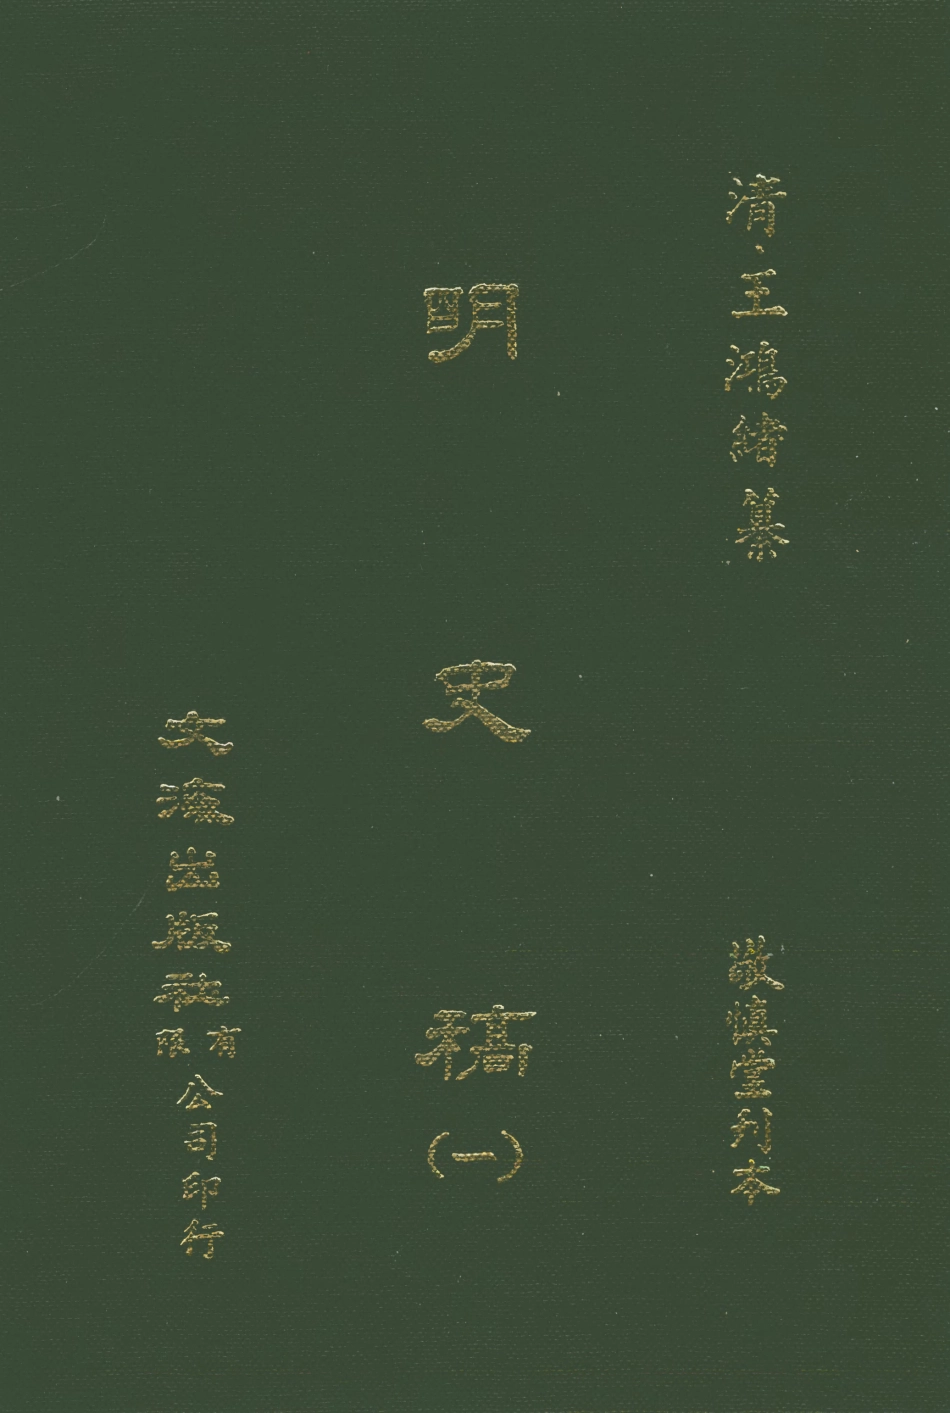 清·王鴻緒纂
敬慎堂刊本
明史稿(一)
文海出版社有限公司印行